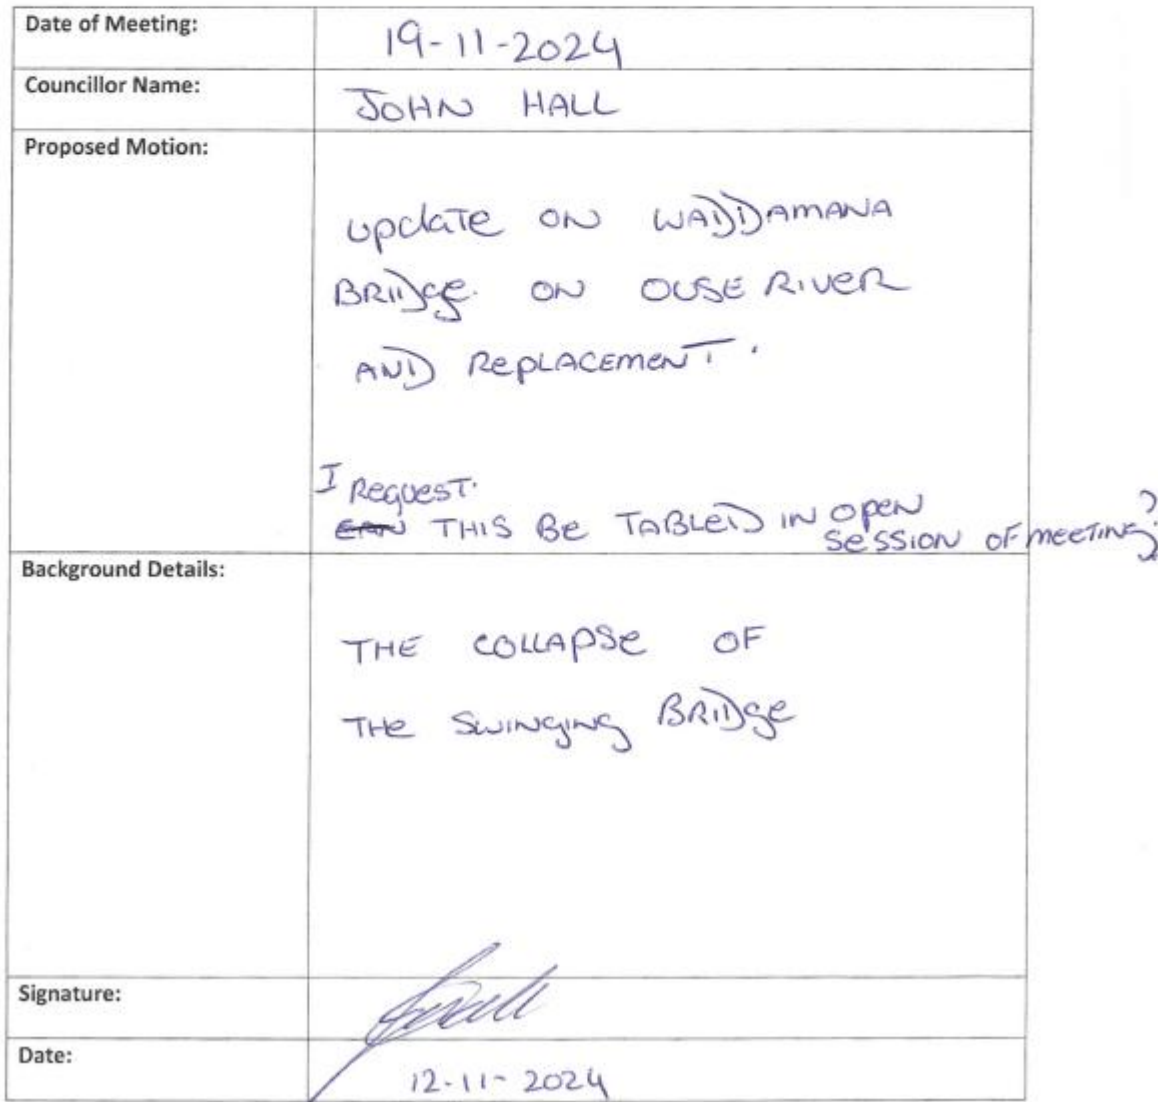 Date of Meeting: 19-11-2024
Councillor Name: JOHN HALL
Proposed Motion:
UPDATE ON WADDAMANA
BRIDGE. ON OUSE RIVER
AND REPLACEMENT.
I REQUEST.
CAN THIS BE TABLED IN OPEN
SESSION OF MEETING?
Background Details:
THE COLLAPSE OF
THE SWINGING BRIDGE
Signature:
Date: 12-11-2024